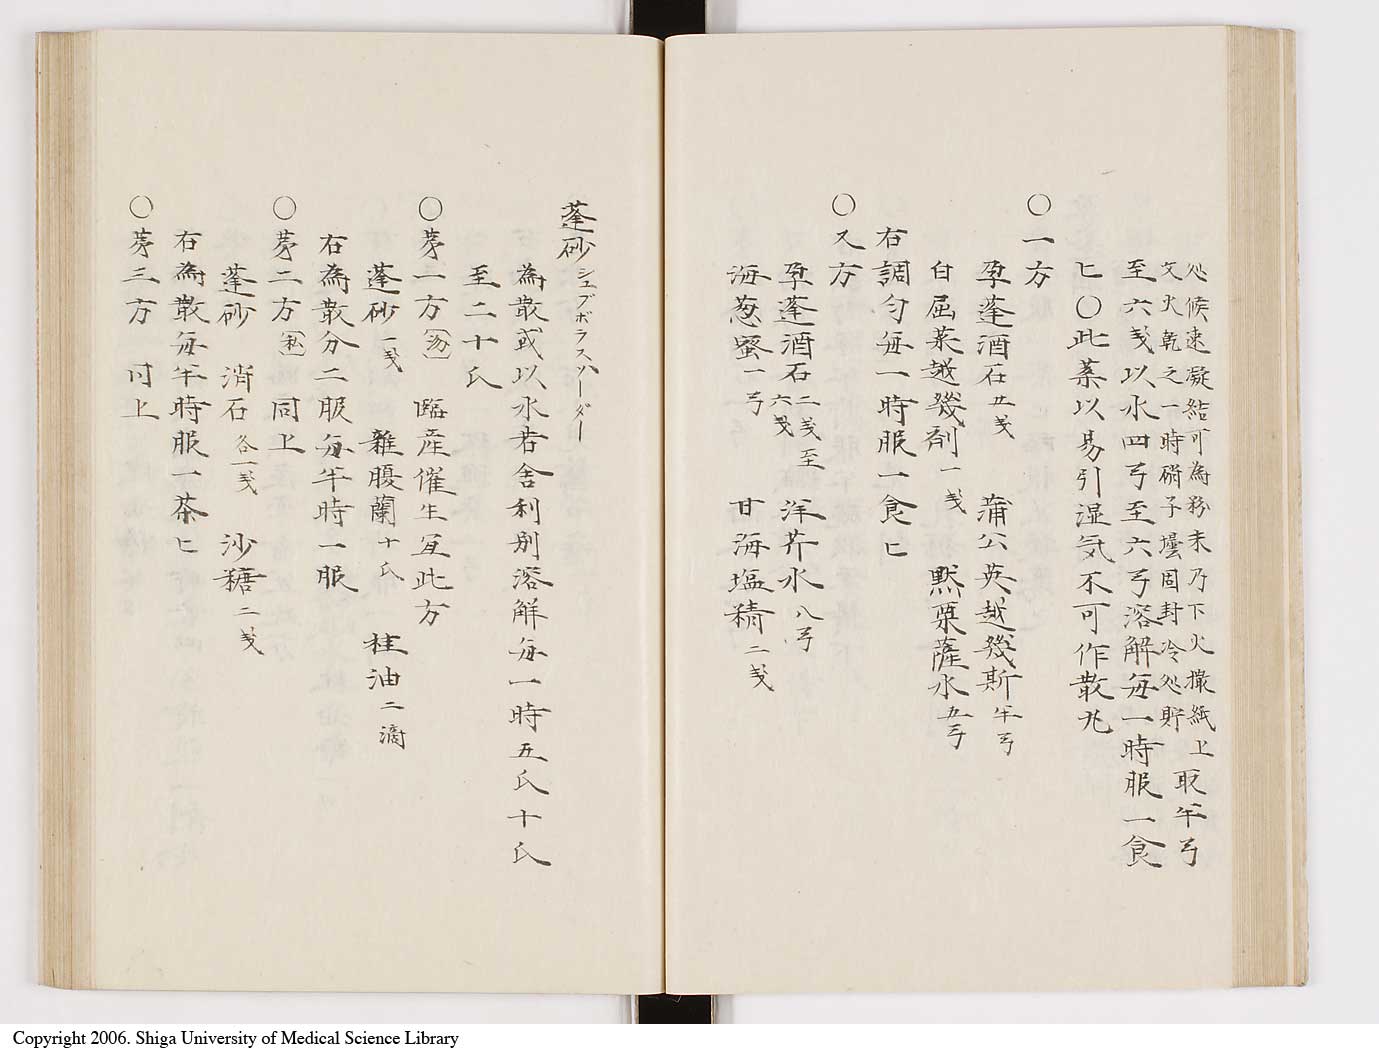 処候速凝結可為粉末乃下火撒紙上取半弓
文火乾之一時硝子壜固封冷処貯
至六戔以水四弓至六弓溶解毎一時服一食
匕〇此薬以易引湿気不可作散丸
〇一方
孕蓬酒石廿戔 蒲公英越幾斯半弓
白屈菜越幾剤一戔 黙栗薩水五弓
右調匀毎一時服一食匕
〇又方
孕蓬酒石二戔至六戔 洋芥水八弓
海葱蜜一弓 甘海塩精二戔
蓬砂シュブボラスハーダー
為散或以水若舎利別溶解毎一時五氏十氏
至二十氏
〇苐一方 臨産催生宜此方
蓬砂一戔 雜腹蘭十氏 桂油二滴
右為散分二服毎半時一服
〇苐二方 同上
蓬砂 消石各一戔 沙糖二戔
右為散毎半時服一茶匕
〇苐三方 同上
Copyright 2006. Shiga University of Medical Science Library